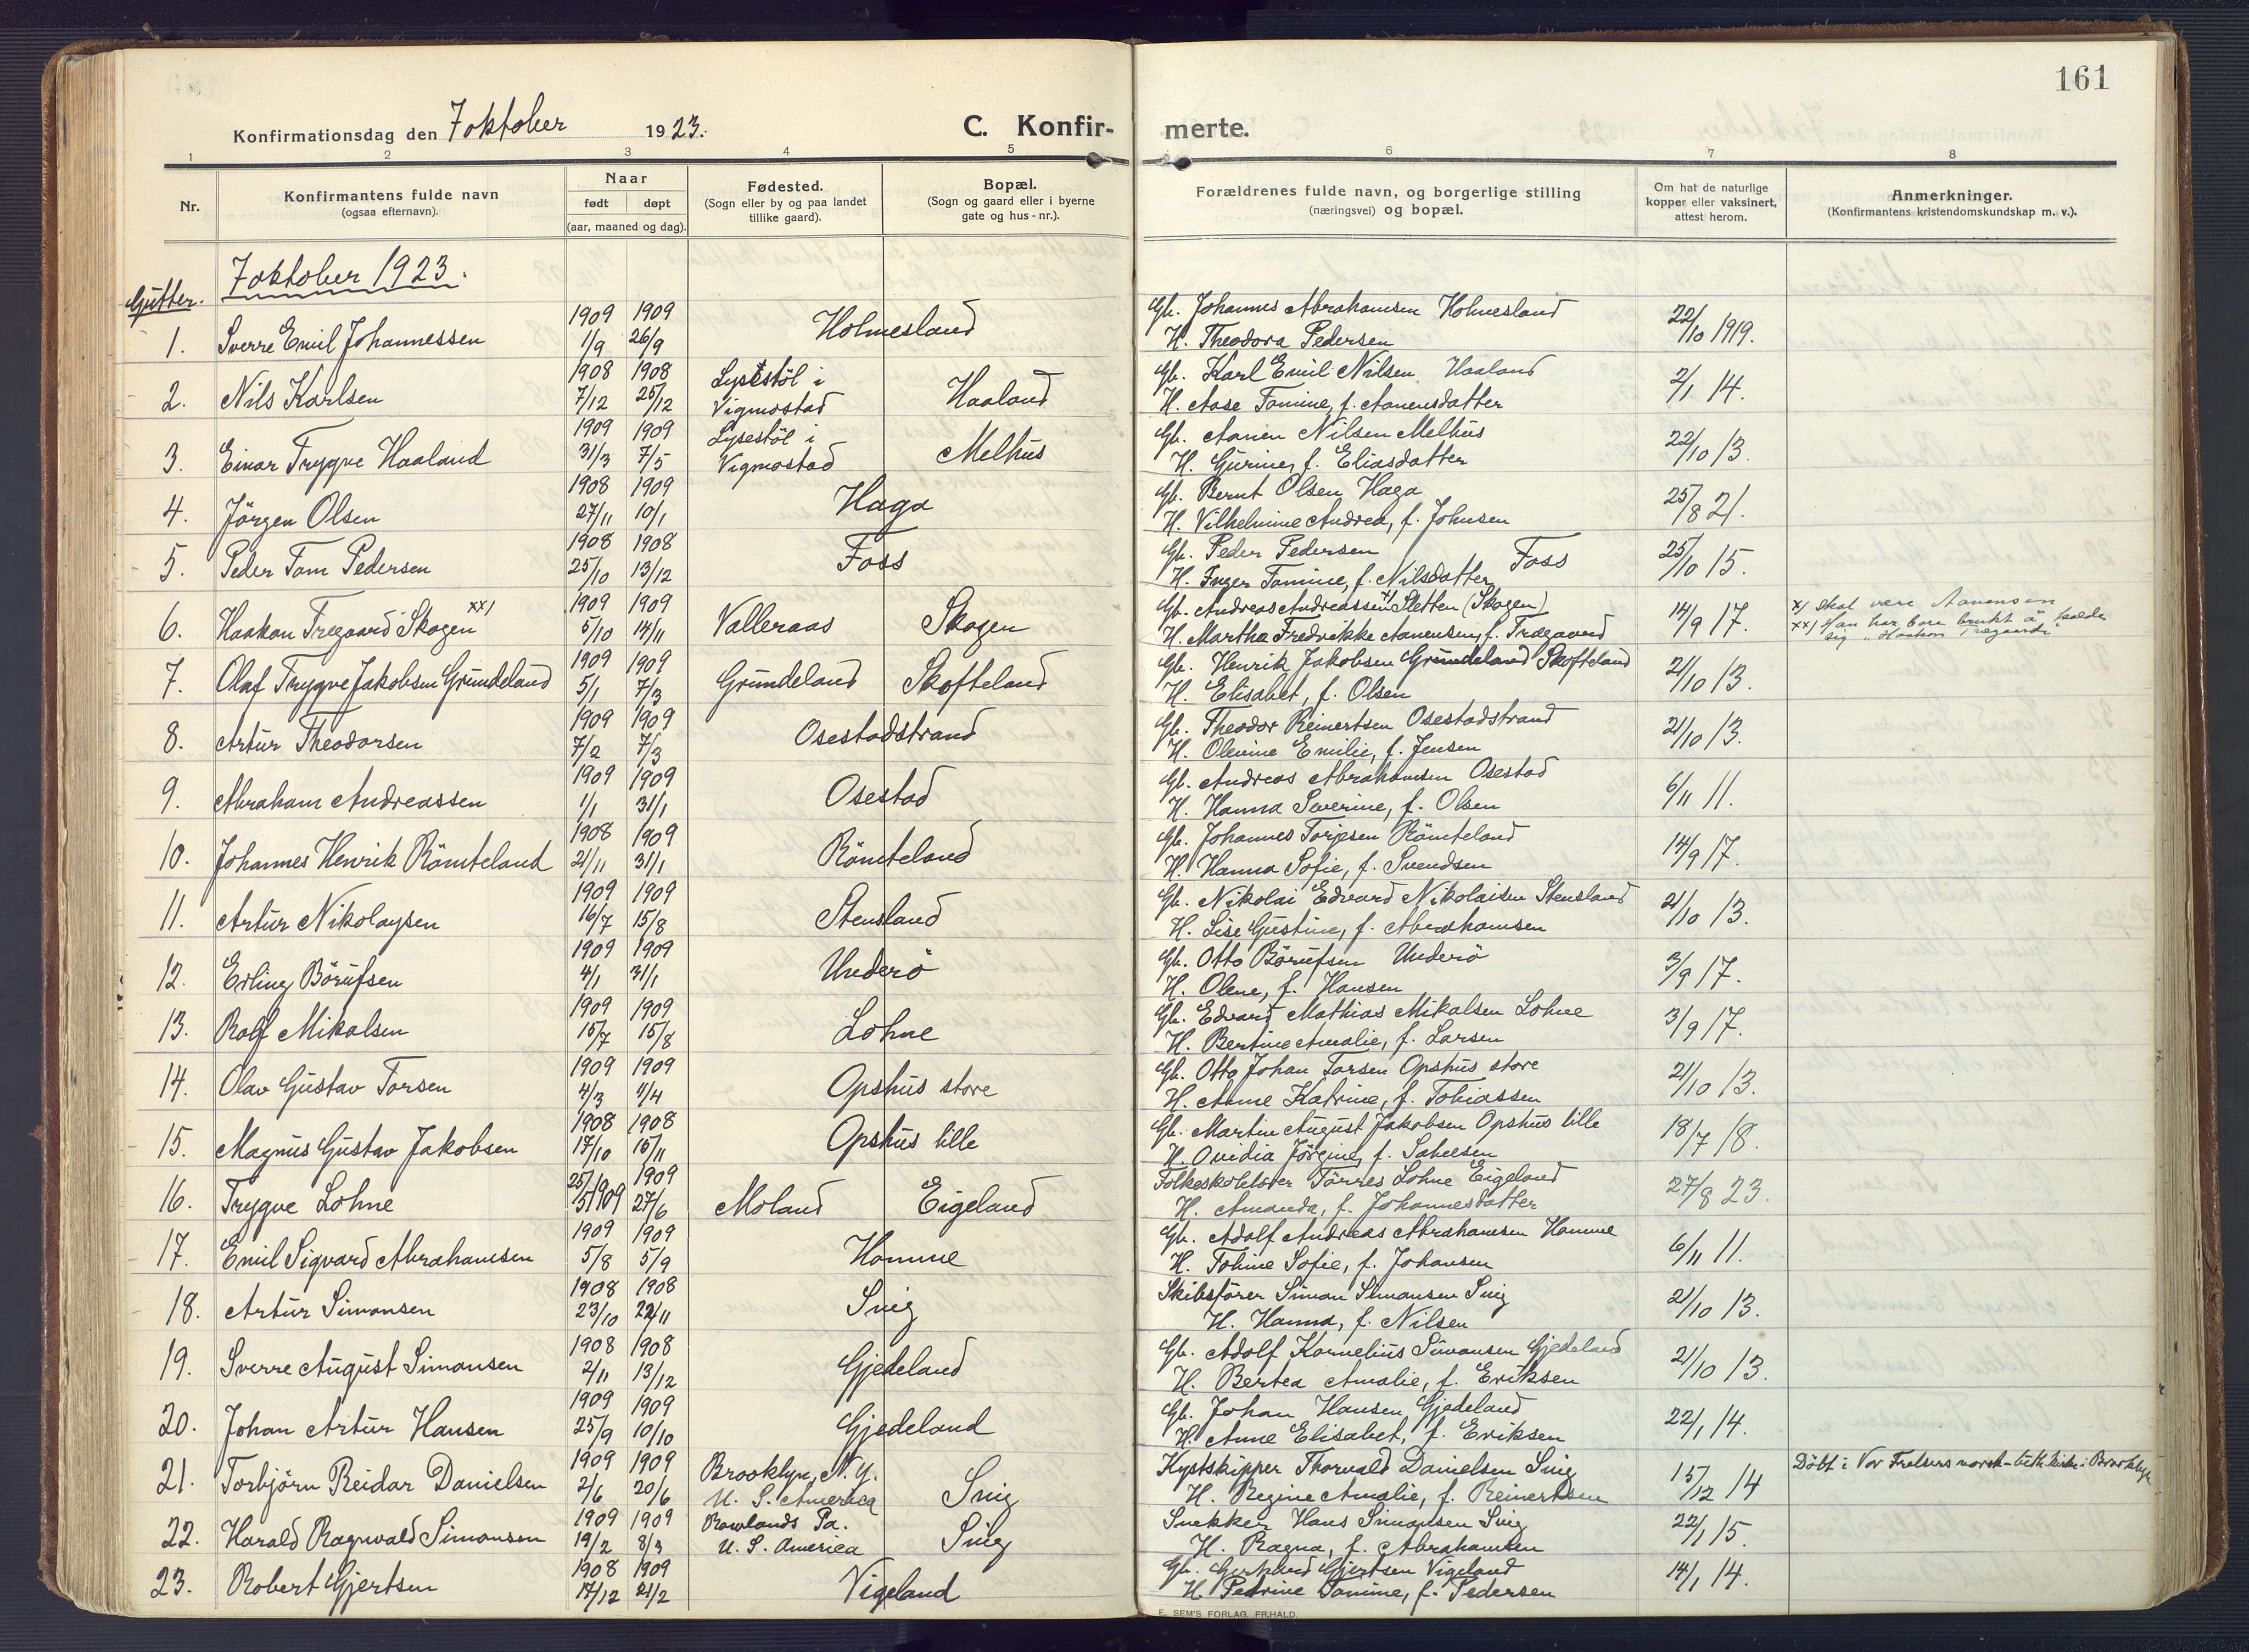 161
Konfirmationsdag den 7 oktober 1923. C. Konfir- merte.
1 2 3 4 5 6 7 8
Nr. Konfirmantens fulde navn (ogsaa efternavn). Naar født døpt (aar, maaned og dag). Fødested. (Sogn eller by og paa landet tillike gaard). Bopæl. (Sogn og gaard eller i byerne gate og hus-nr.). Forældrenes fulde navn, og borgerlige stilling (næringsvei) og bopæl. Om hat de naturlige kopper eller vaksinert, attest herom. Anmerkninger. (Konfirmantens kristendomskundskap m. v.).
7 oktober 1923.
Gutter.
1. Sverre Emil Johannessen 1909 1/9 1909 26/9 Holmesland Gb. Johannes Abrahamsen Holmesland
H. Theodora Pedersen 22/10 1919.
2. Nils Karlsen 1908 7/12 1908 25/12 Lysestöl i Vigmostad Haaland Gb. Karl Emil Nilsen Haaland
H. Aase Tomine, f. Aanensdatter 2/1 14.
3. Einar Trygve Haaland 1909 31/3 1909 7/5 Lysestöl i Vigmostad Melhus Gb. Aanen Nilsen Melhus
H. Gurine, f. Eliasdatter 22/10 13.
4. Jörgen Olsen 1908 27/11 1909 10/1 Haga Gb. Bernt Olsen Haga
H. Vilhelmine Andrea, f. Johnsen 25/8 21.
5. Peder Tom Pedersen 1908 25/10 1908 13/12 Foss Gb. Peder Pedersen Foss
H. Inger Tomine, f. Nilsdatter 25/10 15.
6. Haakon Tregaard Skogen xx) 1909 5/10 1909 14/11 Valleraas Skogen Gb. Andreas Andreassen x) Sletten (Skogen)
H. Martha Fredrikke Aanensen, f. Trægaard 14/9 17. x) skal være Aanensen
xx) Han har bare brukt å kalde
sig "Haakon Trægaard"
7. Olaf Trygve Jakobsen Grundeland 1909 5/1 1909 7/3 Grundeland Skofteland Gb. Henrik Jakobsen Grundeland Skofteland
H. Elisabet, f. Olsen 21/10 13.
8. Artur Theodorsen 1909 7/2 1909 7/3 Osestadstrand Gb. Theodor Reinertsen Osestadstrand
H. Olevine Emilie, f. Jensen 21/10 13.
9. Abraham Andreassen 1909 1/1 1909 31/1 Osestad Gb. Andreas Abrahamsen Osestad
H. Hanna Severine, f. Olsen 6/11 11.
10. Johannes Henrik Römteland 1908 21/11 1909 31/1 Römteland Gb. Johannes Torjesen Römteland
H. Hanna Sofie, f. Svendsen 14/9 17.
11. Artur Nikolaysen 1909 16/7 1909 15/8 Stensland Gb. Nikolai Edvard Nikolaisen Stensland
H. Lise Gustine, f. Abrahamsen 21/10 13.
12. Erling Börufsen 1909 4/1 1909 31/1 Underö Gb. Otto Börufsen Underö
H. Olene, f. Hansen 3/9 17.
13. Rolf Mikalsen 1909 15/7 1909 15/8 Lohne Gb. Edvard Mathias Mikalsen Lohne
H. Bertine Amalie, f. Larsen 3/9 17.
14. Olav Gustav Torsen 1909 4/3 1909 11/4 Opshus store Gb. Otto Johan Torsen Opshus store
H. Anne Katrine, f. Tobiassen 21/10 13.
15. Magnus Gustav Jakobsen 1908 17/10 1908 15/11 Opshus lille Gb. Martin August Jakobsen Opshus lille
H. Ovidia Jörgine, f. Salvesen 18/7 18.
16. Trygve Lohne 25/5 1909 1909 27/6 Moland Eigeland Folkeskolelærer Törres Lohne Eigeland
H. Amanda, f. Johannesdatter 27/8 23.
17. Emil Sigvard Abrahamsen 1909 5/8 1909 5/9 Homme Gb. Adolf Andreas Abrahamsen Homme
H. Tomine Sofie, f. Johansen 6/11 11.
18. Artur Simonsen 1908 23/10 1908 22/11 Snig Skibsförer Simon Simonsen Snig
H. Hanna, f. Nilsen 21/10 13.
19. Sverre August Simonsen 1908 2/11 1908 13/12 Gjedeland Gb. Adolf Kornelius Simonsen Gjedeland
H. Bertea Amalie, f. Eriksen 21/10 13.
20. Johan Artur Hansen 1909 25/9 1909 10/10 Gjedeland Gb. Johan Hansen Gjedeland
H. Anne Elisabet, f. Eriksen 22/1 14.
21. Torbjörn Reidar Danielsen 1909 2/6 1909 20/6 Brooklyn, N.Y. U. S. America Snig Kystskipper Thorvald Danielsen Snig
H. Regine Amalie, f. Reinertsen 15/12 14 Döbt i Vor Frelsers norsk-luth. kirke i Brooklyn
22. Harald Ragnvald Simonsen 1909 19/2 1909 8/3 Rowlands Pa. U. S. America Snig Snekker Hans Simonsen Snig
H. Ragna, f. Abrahamsen 22/1 15.
23. Robert Gjertsen 1908 17/12 1909 21/2 Vigeland Gb. Gerhard Gjertsen Vigeland
H. Petrine Tomine, f. Pedersen 14/1 14.
E. SEM'S FORLAG, FR.HALD.